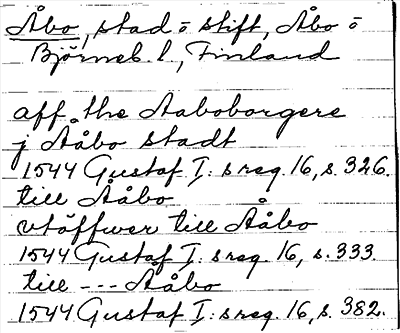 Åbo, stad o stift, Åbo o
Björneb. l., Finland
aff the Aaboborgere
jÅåbo stadt
1544 Gustaf I: s reg. 16, s. 326.
till Ååbo
vtöffwer till Ååbo
1544 Gustaf I: s reg. 16, s. 333
till --- Ååbo
1544 Gustaf I: s reg. 16, s. 382.